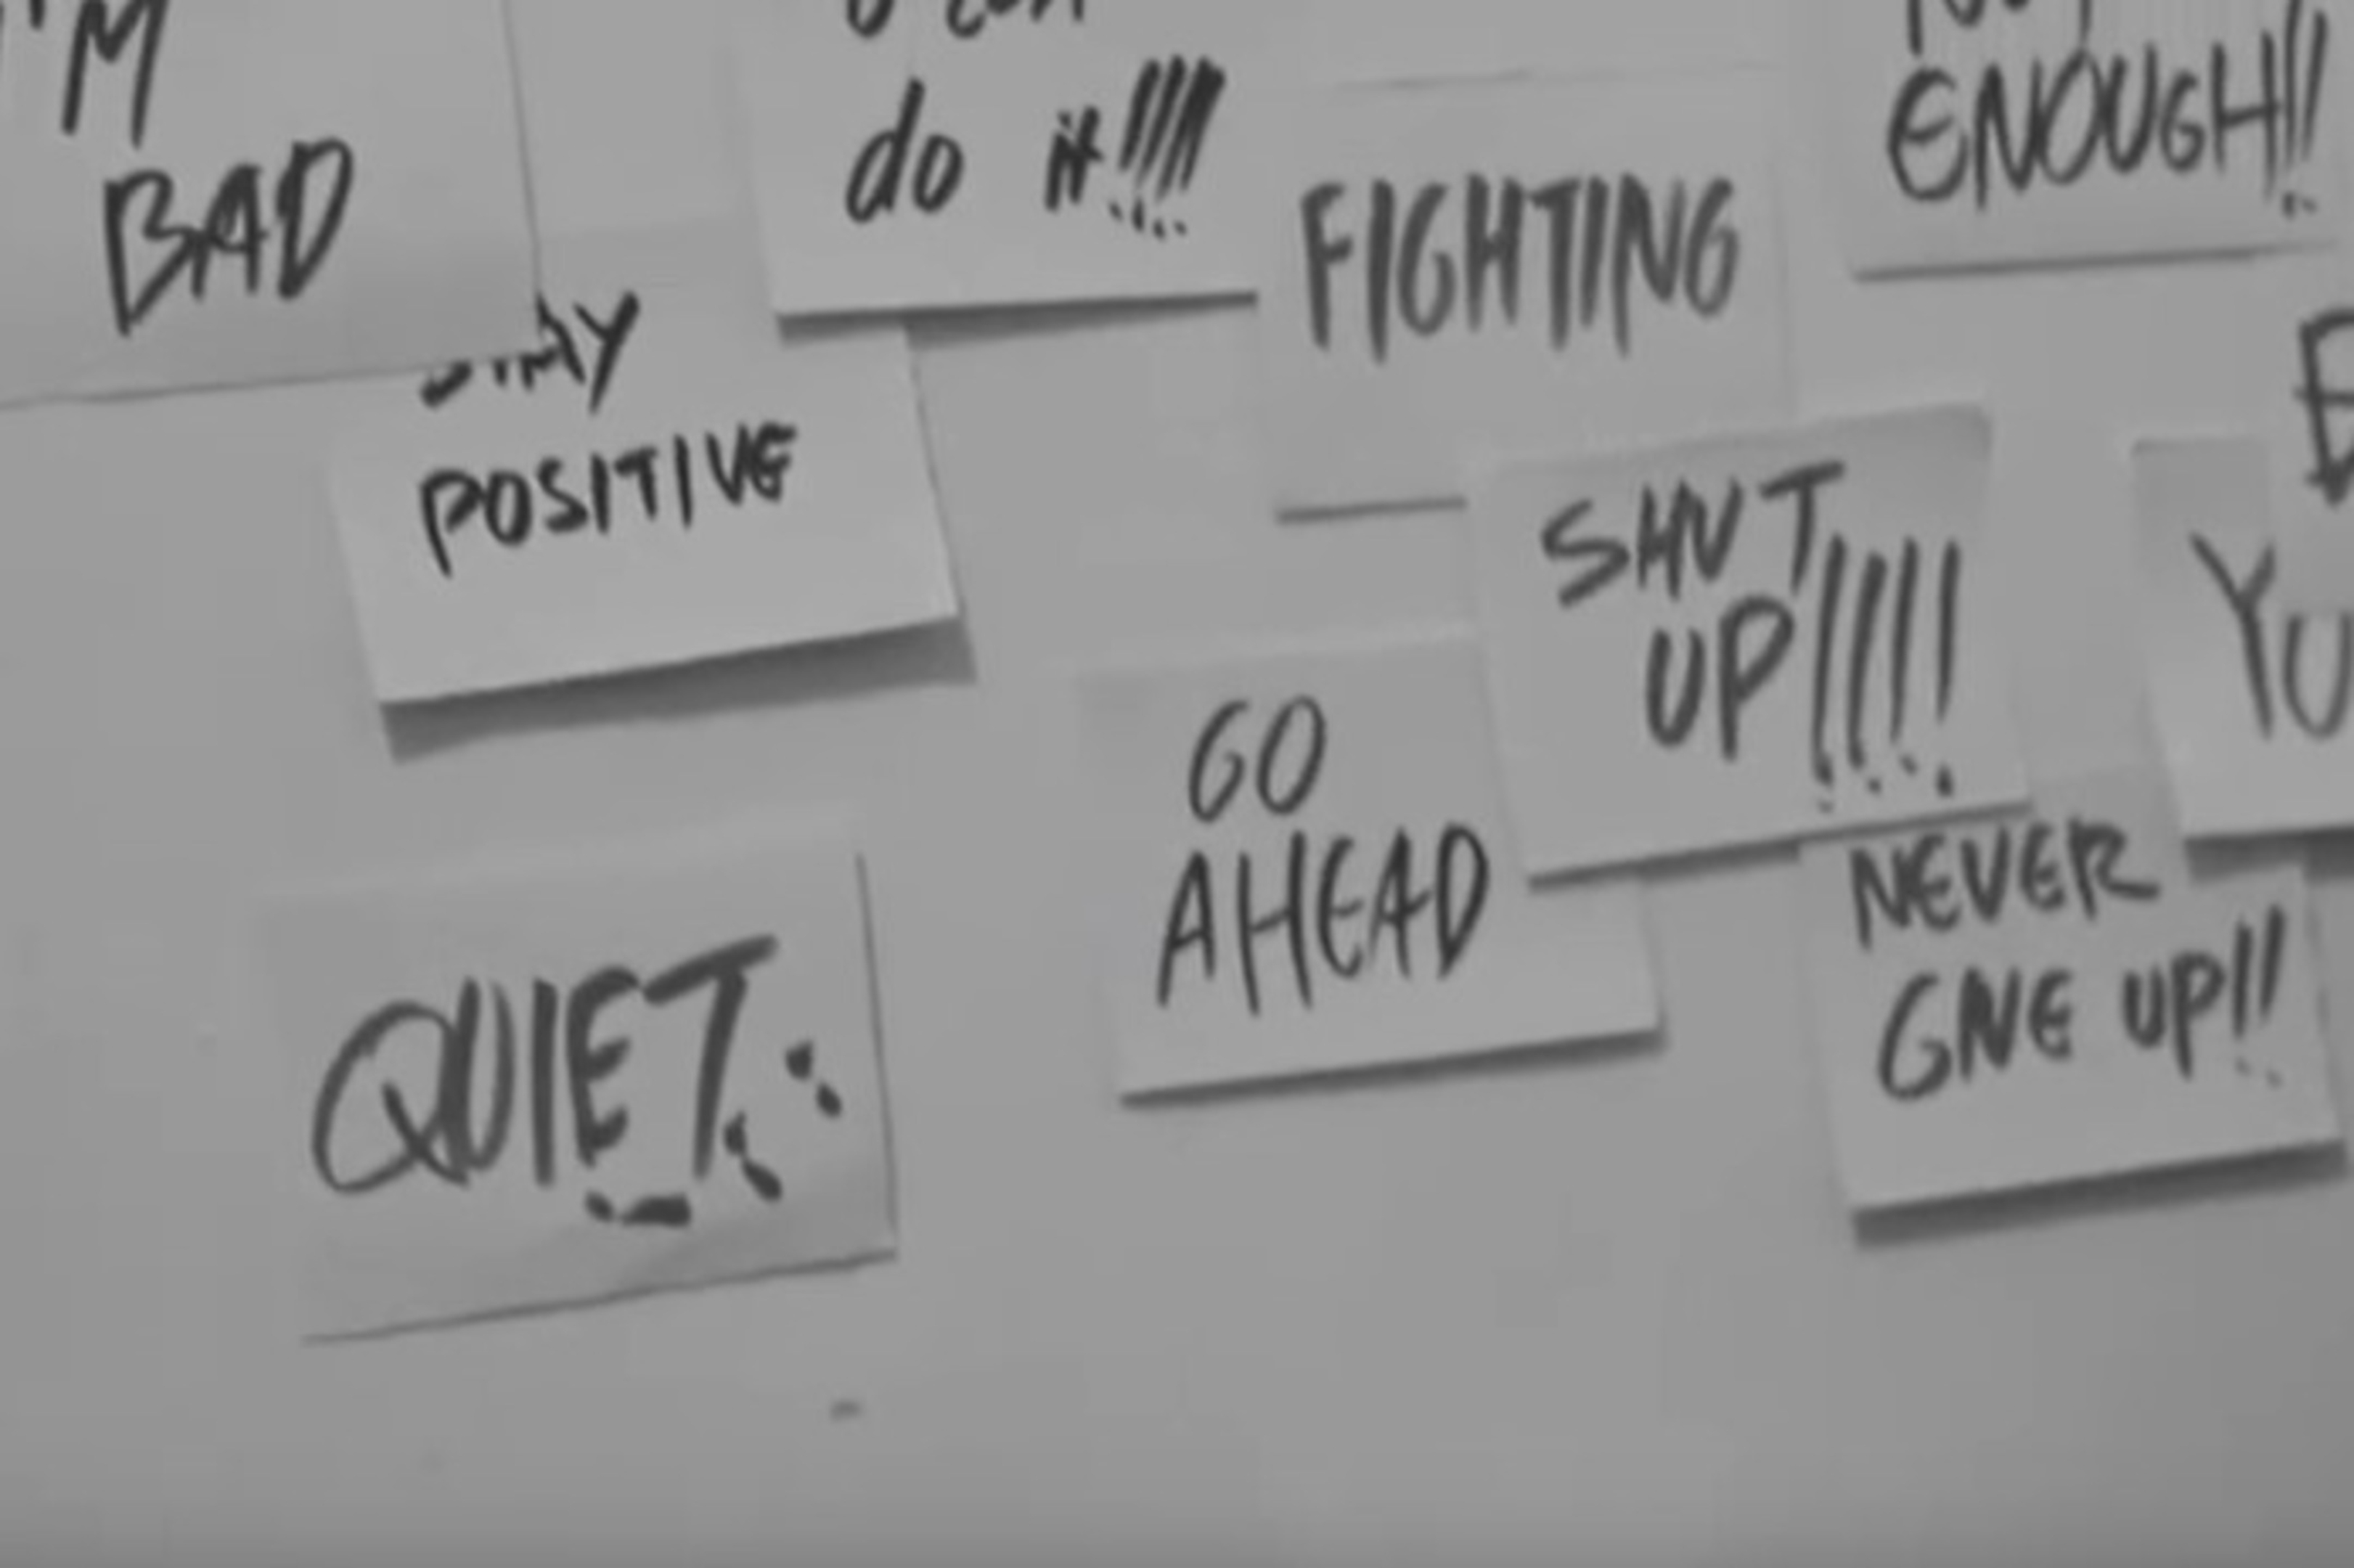 I'M
BAD
do it!!!!
FIGHTING
ENOUGH!!
STAY
POSITIVE
SHUT
UP!!!!
GO
AHEAD
NEVER
GIVE UP!!
QUIET